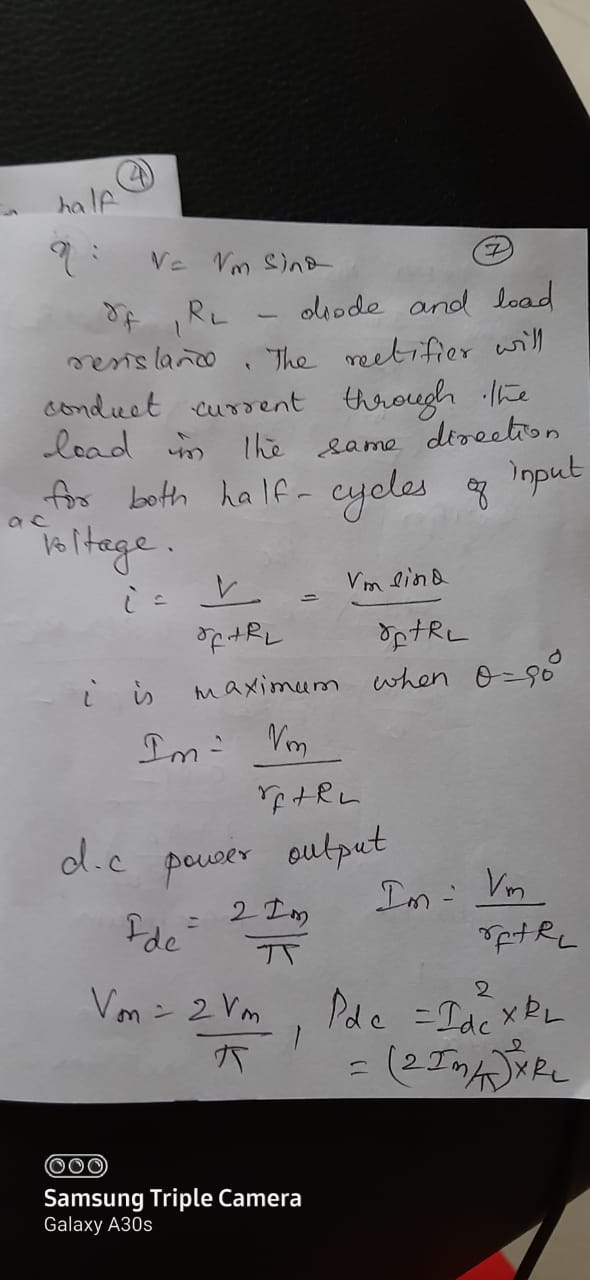 ④
half
η : V = Vm sinθ ⑦
rf , RL – diode and load
resistance. The rectifier will
conduct current through the
load in the same direction
for both half-cycles of input
ac voltage.
i = V / rf+RL = Vm sinθ / rf+RL
i is maximum when θ=90°
Im = Vm / rf+RL
d.c power output
Idc = 2Im / π Im = Vm / rf+RL
Vm = 2Vm / π , Pdc = Idc² × RL
= (2Im/π)² × RL
Samsung Triple Camera
Galaxy A30s